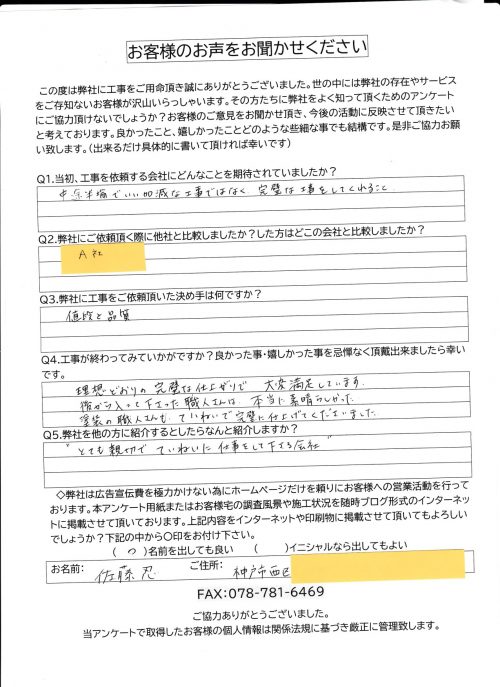 お客様のお声をお聞かせください
この度は弊社に工事をご用命頂き誠にありがとうございました。世の中には弊社の存在やサービス
をご存知ないお客様が沢山いらっしゃいます。その方たちに弊社をよく知って頂くためのアンケート
にご協力頂けないでしょうか？お客様のご意見をお聞かせ頂き、今後の活動に反映させて頂きたい
と考えております。良かったこと、嬉しかったことどのような些細な事でも結構です。是非ご協力お願
い致します。（出来るだけ具体的に書いて頂ければ幸いです）
Q1.当初、工事を依頼する会社にどんなことを期待されていましたか？
中途半端でいい加減な工事ではなく、完璧な工事をしてくれること。
Q2.弊社にご依頼頂く際に他社と比較しましたか？した方はどこの会社と比較しましたか？
A社
Q3.弊社に工事をご依頼頂いた決め手は何ですか？
値段と品質
Q4.工事が終わってみていかがですか？良かった事・嬉しかった事を忌憚なく頂戴出来ましたら幸い
です。
理想どおりの完璧な仕上がりで 大変満足しています。
後から入って下さった職人さんは、本当に素晴らしかった。
塗装の職人さんも、ていねいで完璧に仕上げてくださいました。
Q5.弊社を他の方に紹介するとしたらなんと紹介しますか？
"とても親切で ていねいに 仕事をして下さる会社"
◇弊社は広告宣伝費を極力かけない為にホームページだけを頼りにお客様への営業活動を行って
おります。本アンケート用紙またはお客様宅の調査風景や施工状況を随時ブログ形式のインターネッ
トに掲載させて頂いております。上記内容をインターネットや印刷物に掲載させて頂いてもよろしい
でしょうか？下記の中から〇印をお付け下さい。
（ ○ ）名前を出しても良い （ ）イニシャルなら出してもよい
お名前： 佐藤忍 ご住所： 神戸市西区
FAX:078-781-6469
ご協力ありがとうございました。
当アンケートで取得したお客様の個人情報は関係法規に基づき厳正に管理致します。